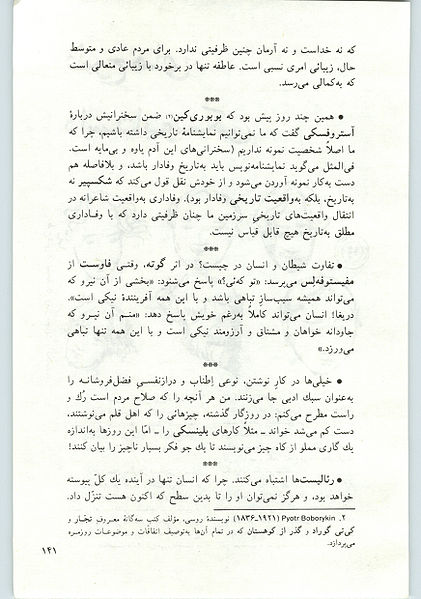 که نه خداست و نه آرمان چنین ظرفیتی ندارد. برای مردم عادی و متوسط
حال، زیبائی امری نسبی است. عاطفه تنها در برخورد با زیبائی متعالی است
که به‌کمالی می‌رسد.
***
● همین چند روز پیش بود که بوبوری‌کین(۲) ضمن سخنرانیش دربارهٔ
آستروفسکی گفت که ما نمی‌توانیم نمایشنامهٔ تاریخی داشته باشیم، چرا که
ما اصلاً شخصیت نمونه نداریم (سخنرانی‌های این آدم یاوه و بی‌مایه است.
فی‌المثل می‌گوید نمایشنامه‌نویس باید به‌تاریخ وفادار باشد، و بلافاصله هم
دست به‌کار نمونه آوردن می‌شود و از خودش نقل قول می‌کند که شکسپیر نه
به‌تاریخ، بلکه به‌واقعیت تاریخی وفادار بود). وفاداری به‌واقعیت شاعرانه در
انتقال واقعیت‌های تاریخی سرزمین ما چنان ظرفیتی دارد که با وفـاداری
مطلق به‌تاریخ هیچ قابل قیاس نیست.
***
● تفاوت شیطان و انسان در چیست؟ در اثر گوته، وقتـی فاوست از
مفیستوفه‌لس می‌پرسد: «تو که‌ئی؟» پاسخ می‌شنود: «بخشی از آن نیرو که
می‌تواند همیشه سبب‌ساز تباهی باشد و با این همه آفرینندهٔ نیکی است».
دریغا! انسان می‌تواند کاملاً به‌رغم خویش پاسخ دهد: «منـم آن نیـرو که
جاودانه خواهان و مشتاق و آرزومند نیکی است و با این همه تنها تباهی
می‌ورزد.»
***
● خیلی‌ها در کار نوشتن، نوعی اِطناب و درازنفسیِ فضل‌فروشانـه را
به‌عنوان سبك ادبی جا می‌زنند. من هر آنچه را که صلاح مردم است رُك و
راست مطرح می‌کنم: در روزگار گذشته، چیزهائی را که اهل قلم می‌نوشتند،
دست کم می‌شد خواند ـ مثلاً کارهای بلینسکی را ـ امّا این روزها به‌اندازه
یك گاری مملو از کاه چیز می‌نویسند تا یك جو فکر بسیار ناچیز را بیان کنند!
***
● رئالیست‌ها اشتباه می‌کنند. چرا که انسان تنها در آینده یك کلّ پیوسته
خواهد بود، و هرگز نمی‌توان او را تا بدین سطح که اکنون هست تنزّل داد.
۲. Pyotr Boborykin (۱۹۲۱-۱۸۳۶) نویسندهٔ روسی، مؤلف کتب سه‌گانهٔ معـروف تجّـار و
کی‌تی گوراد و گذر از کوهستان که در تمام آن‌ها به‌توصیف اتفاقات و موضوعـات روزمـره
می‌پردازد.
۱۴۱